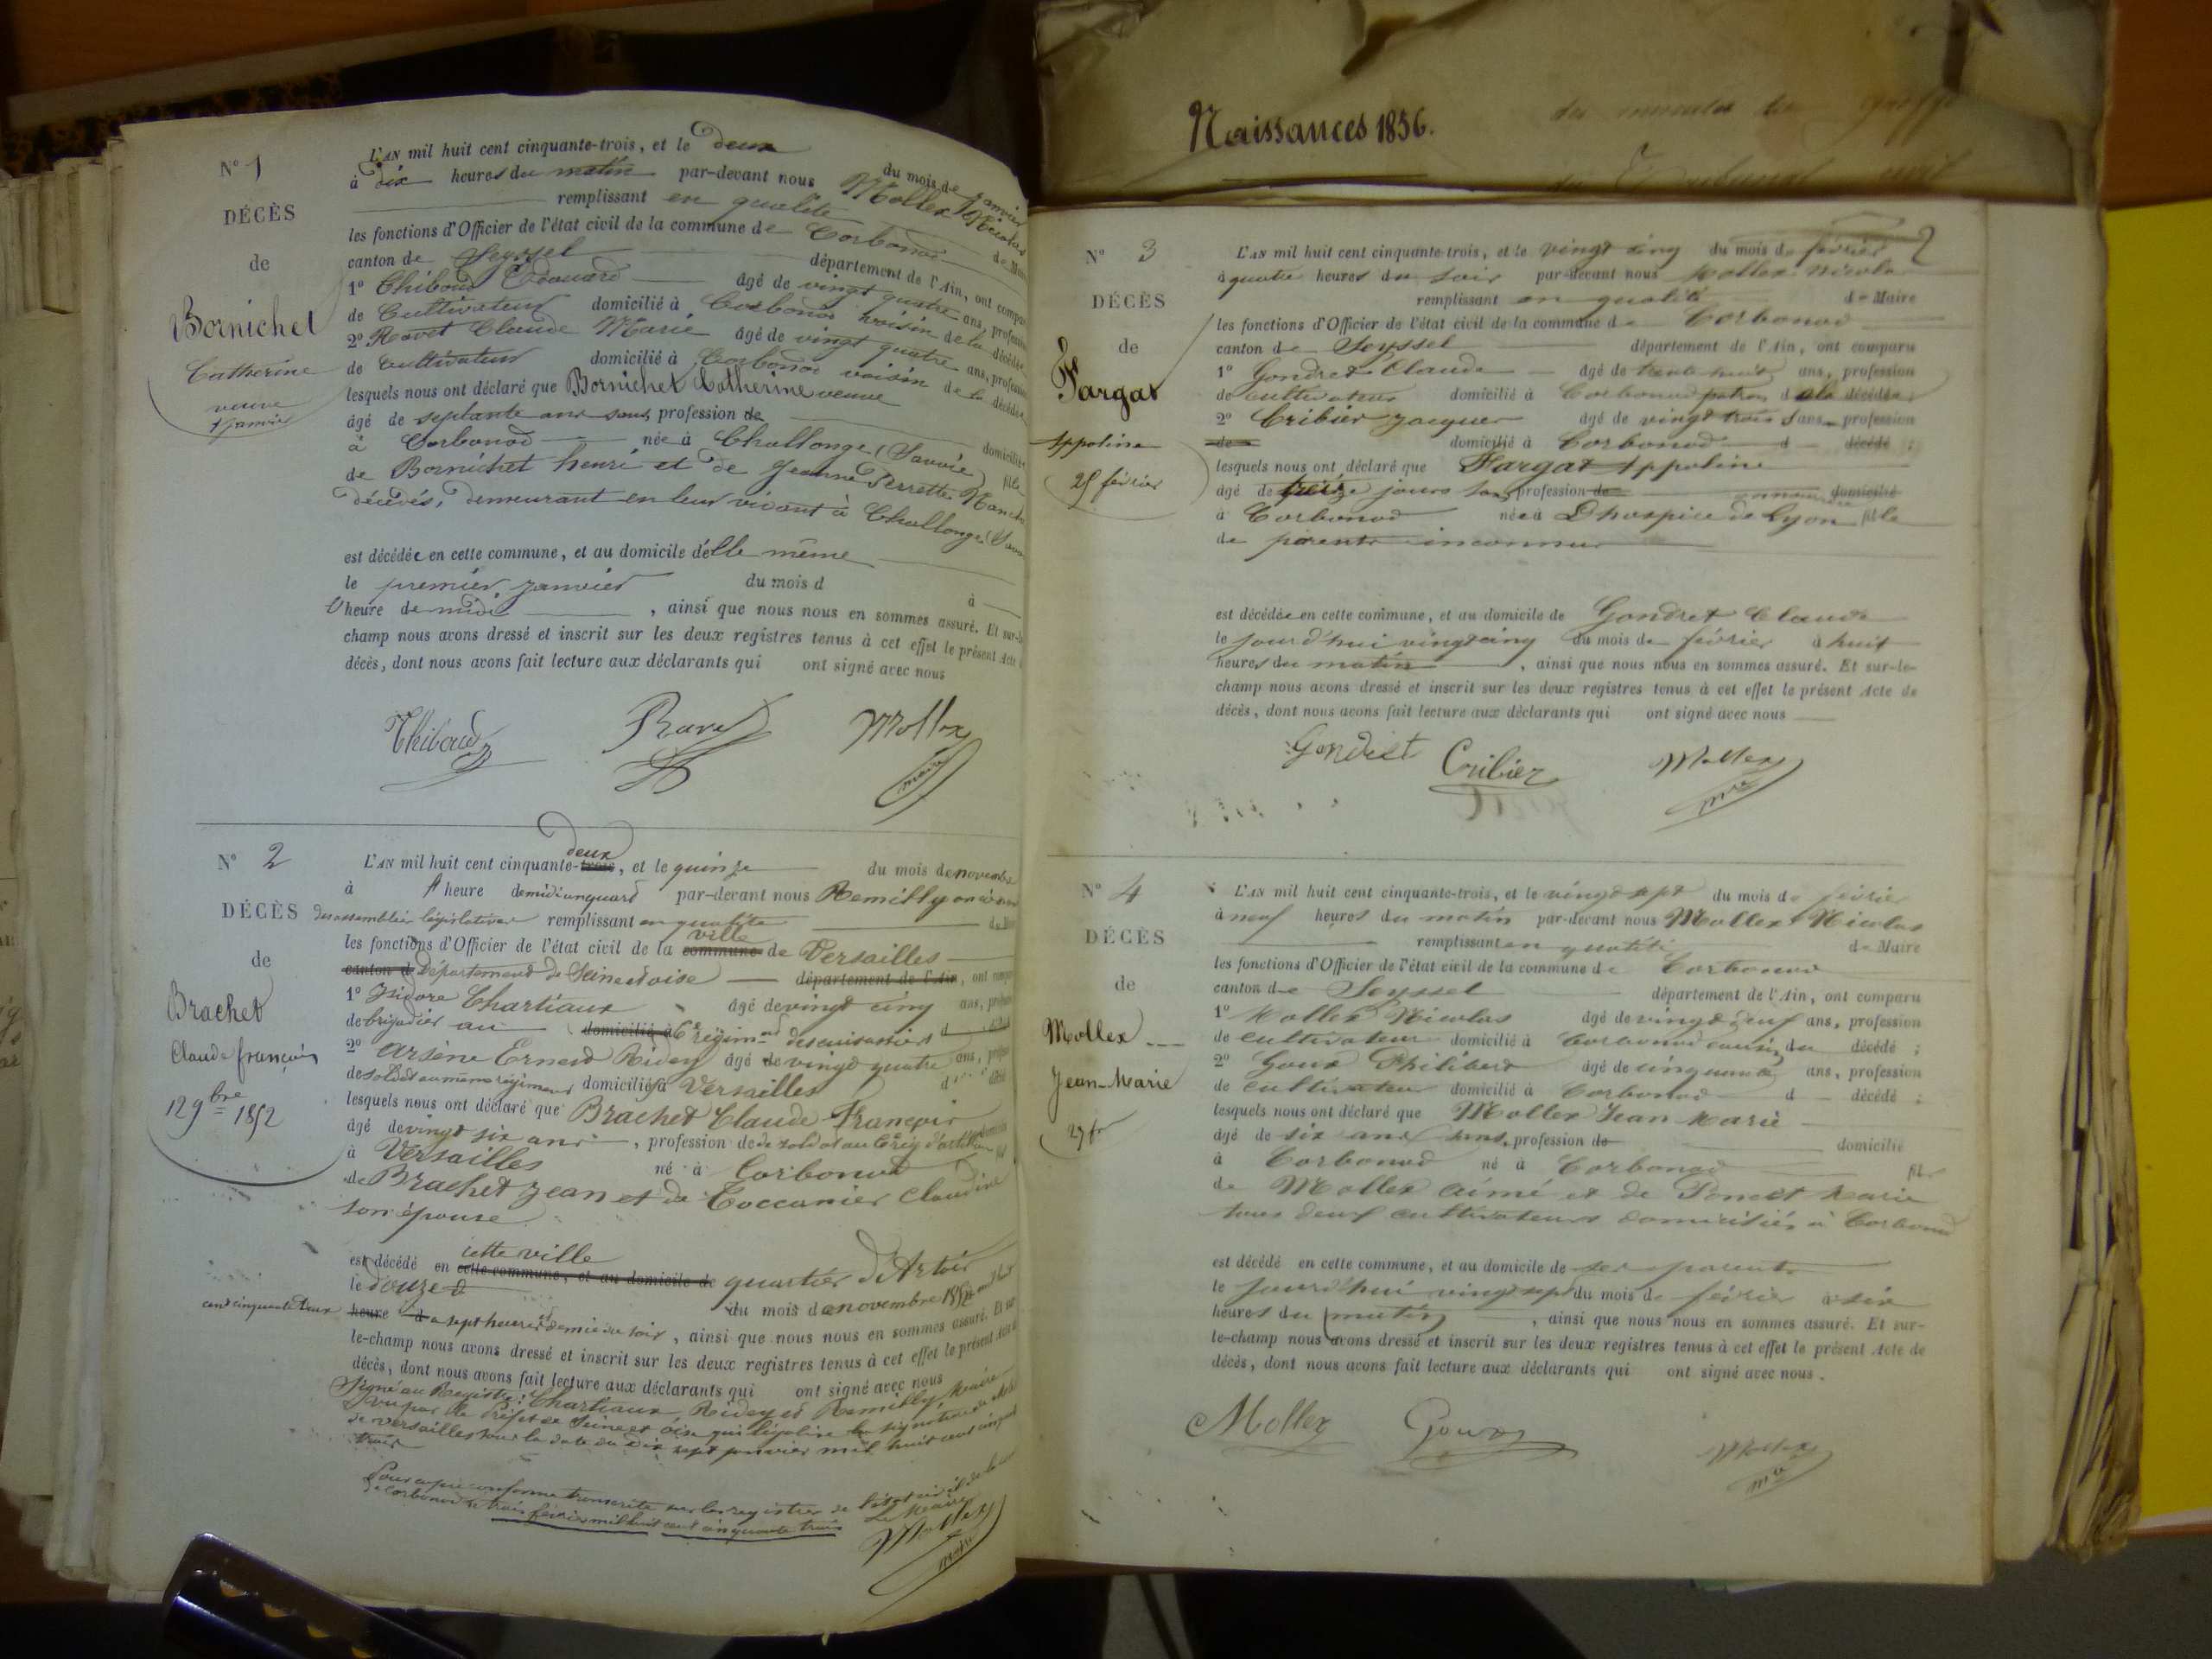 N° 1
DÉCÈS
de
Bornichet
Catherine
veuve
1 janvier
L'AN mil huit cent cinquante-trois, et le deux du mois de janvier
à dix heures du matin par-devant nous Mollex Nicolas
remplissant en qualité de Maire
les fonctions d'Officier de l'état civil de la commune de Corbonod
canton de Seyssel département de l'Ain, ont compa
1° Thiboud Edouard âgé de vingt quatre ans, profession
de Cultivateur domicilié à Corbonod voisin de la décédée
2° Ravet Claude Marie âgé de vingt quatre ans, profession
de cultivateur domicilié à Corbonod voisin de la décédée
lesquels nous ont déclaré que Bornichet Catherine veuve
âgé de septante ans sans profession de domiciliée
à Corbonod née à Challonge (Savoie) fille
de Bornichet henri et de Jeanne Perrette
décédés, demeurant en leur vivant à Challonge (Savoie
est décédée en cette commune, et au domicile d'elle même
le premier janvier du mois d à
heure de midi, ainsi que nous nous en sommes assuré. Et sur-le
champ nous avons dressé et inscrit sur les deux registres tenus à cet effet le présent Acte
décès, dont nous avons fait lecture aux déclarants qui ont signé avec nous
Thiboud Ravet Mollex
maire
N° 2
DÉCÈS
de
Brachet
Claude françois
12 9bre 1852
deux
L'AN mil huit cent cinquante-trois, et le quinze du mois de novembre
à 1 heure de midi un quart par-devant nous Remilly
des assemblées législatives remplissant en qualité de Maire
ville
les fonctions d'Officier de l'état civil de la commune de Versailles
canton de Département de Seine et oise département de l'Ain, ont compa
1° Isidore Chartiaux âgé de vingt cinq ans, profes
de brigadier au domicilié à 6e régimt de cuirassiers d
2° Arsène Ernest Ridey âgé de vingt quatre ans, profes
de soldat au même régiment domicilié à Versailles d
lesquels nous ont déclaré que Brachet Claude François
âgé de vingt six ans, profession de de soldat au
à Versailles né à Corbonod
de Brachet Jean et de Coccanier Claudine
son épouse
cette ville
est décédé en cette commune, et au domicile de quartier d'Artois
le douze d du mois de novembre 1852
cent cinquante deux
heure d a sept heures et demie du soir, ainsi que nous nous en sommes assuré. Et sur
le-champ nous avons dressé et inscrit sur les deux registres tenus à cet effet le présent Acte d
décès, dont nous avons fait lecture aux déclarants qui ont signé avec nous
Signé au Registre: Chartiaux Ridey et Remilly Maire
Vu par le Préfet de Seine et oise qui légalise la signature du
de versailles sous la date du dix sept janvier mil huit cent cinquante
trois
Pour copie conforme transcrite sur les registres de l'état civil de la
de Corbonod le trois février mil huit cent cinquante trois
Le Maire
Mollex
maire
Naissances 1856.
2
N° 3
DÉCÈS
de
Fargat
Appoline
25 février
L'AN mil huit cent cinquante-trois, et le vingt cinq du mois de février
à quatre heures du soir par-devant nous Mollex Nicolas
remplissant en qualité de Maire
les fonctions d'Officier de l'état civil de la commune de Corbonod
canton de Seyssel département de l'Ain, ont comparu
1° Gondret Claude âgé de trente huit ans, profession
de cultivateur domicilié à Corbonod patron de la décédée
2° Cribier Jacques âgé de vingt trois ans, profession
de domicilié à Corbonod d décédé ;
lesquels nous ont déclaré que Fargat Appoline
âgé de treize jours sans profession de domicilié
à Corbonod née à L'hospice de Lyon fille
de parents inconnus
est décédée en cette commune, et au domicile de Gondret Claude
le jourd'hui vingt cinq du mois de février à huit
heures du matin, ainsi que nous nous en sommes assuré. Et sur-le-
champ nous avons dressé et inscrit sur les deux registres tenus à cet effet le présent Acte de
décès, dont nous avons fait lecture aux déclarants qui ont signé avec nous
Gondret Cribier Mollex
mre
N° 4
DÉCÈS
de
Mollex
Jean-Marie
27 fr
L'AN mil huit cent cinquante-trois, et le vingt sept du mois de février
à neuf heures du matin par-devant nous Mollex Nicolas
remplissant en qualité de Maire
les fonctions d'Officier de l'état civil de la commune de Corbonod
canton de Seyssel département de l'Ain, ont comparu
1° Mollex Nicolas âgé de vingt neuf ans, profession
de cultivateur domicilié à Corbonod cousin du décédé ;
2° Goux Philibert âgé de cinquante ans, profession
de cultivateur domicilié à Corbonod d décédé ;
lesquels nous ont déclaré que Mollex Jean Marie
âgé de six ans sans profession de domicilié
à Corbonod né à Corbonod fils
de Mollex aimé et de Poncet Marie
tous deux cultivateurs domiciliés à Corbonod
est décédé en cette commune, et au domicile de ses parents
le jourd'hui vingt sept du mois de février à six
heures du matin, ainsi que nous nous en sommes assuré. Et sur-
le-champ nous avons dressé et inscrit sur les deux registres tenus à cet effet le présent Acte de
décès, dont nous avons fait lecture aux déclarants qui ont signé avec nous.
Mollex Goux Mollex
mre